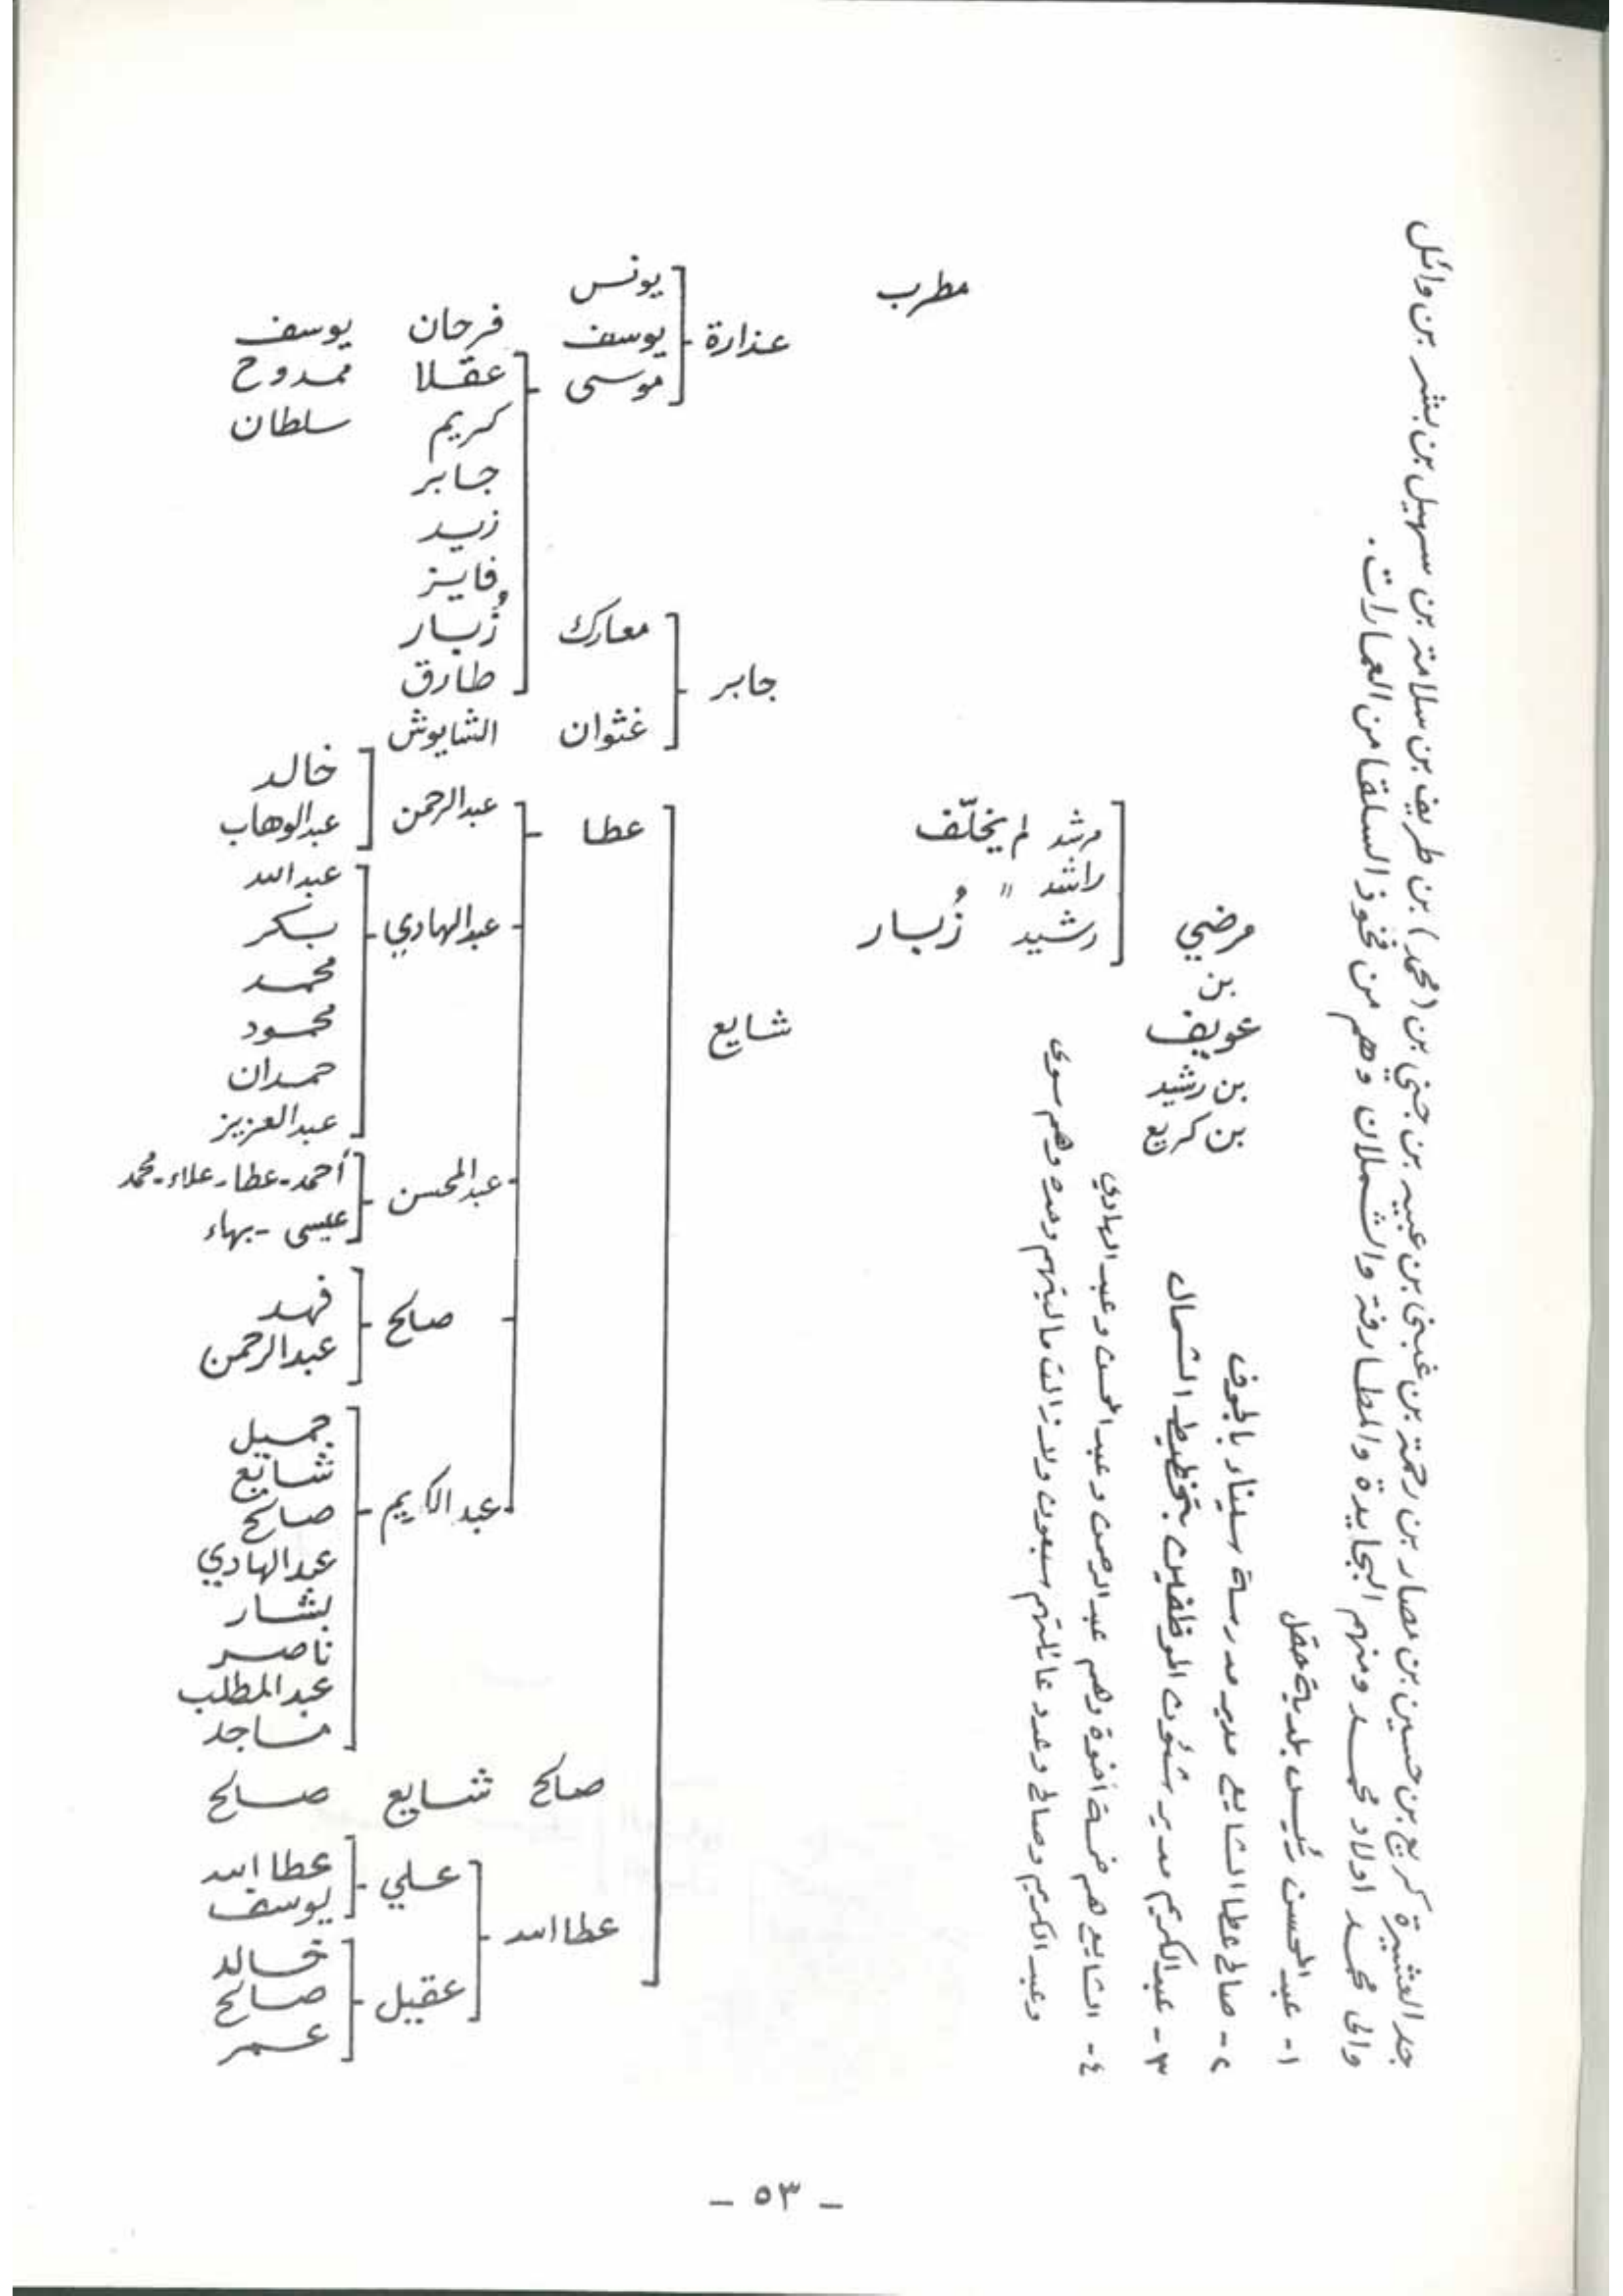 جد العشيرة كريع بن حسين بن نصار بن رحمة بن غبني بن عبيه بن جني بن (محمد) بن طريف بن سلامة بن سهيل بن بشر بن وائل
والى محمد اولاد محمد ومنهم البجايدة والمطارفة والشملان وهم من فخوذ السلقا من العمارات.
١- عبد المحسن رئيس بلدية حقل
٢- صالح عطا الشايع مدير مدرسة سيناء بالجوف
٣- عبدالكريم مدير شئون الموظفين بتخطيط الشمال
٤- الشايع هم خمسة أخوة وهم عبد الرحمن وعبد المحسن وعبد الهادي
وعبد الكريم وصالح وعدد عائلتهم سبعون ولا زالت ماليتهم وحده وهم سوى
مرضي
بن
عويف
بن رشيد
بن كريع
مرشد لم يخلّف
راشد "
رشيد " زُبار
مطرب
عذارة
يونس
يوسف
موسى
جابر
معارك
غثوان
فرحان يوسف
عقلا ممدوح
كريم سلطان
جابر
زيد
فايز
زُبار
طارق
الشايوش
شايع
عطا
عبدالرحمن
خالد
عبدالوهاب
عبدالهادي
عبدالله
بكر
محمد
محمود
حمدان
عبدالعزيز
عبدالمحسن
أحمد-عطا-علاء-محمد
عيسى - بهاء
صالح
فهد
عبدالرحمن
عبد الكريم
جميل
شايع
صالح
عبدالهادي
بشار
ناصر
عبدالمطلب
ماجد
صالح شايع صالح
عطا الله
علي
عطا الله
يوسف
عقيل
خالد
صالح
عمر
- ٥٣ -